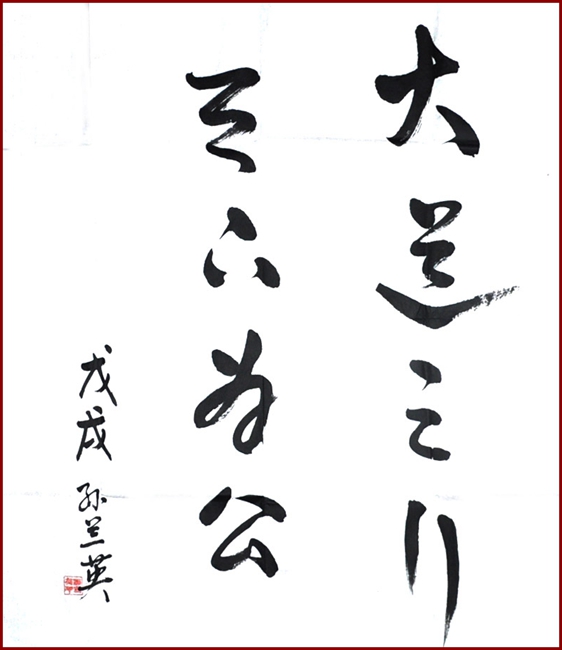 大道之行
天下为公
戊戌 孙兰英